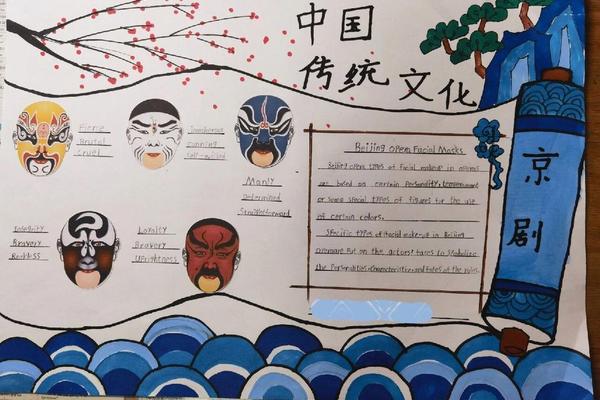 中国
传统 文化
京
剧
Fierce
Brutal
Cruel
Treacherous
Cunning
Self-willed
Manly
Determined
Straightforward
Integrity
Bravery
Reckless
Loyalty
Bravery
Uprightness
Beijing Opera Facial Masks
Beijing opera types of facial makeup in
are based on certain personality,
or some special types of figures for the use
of certain colors.
Specific types of facial make-up in Beijing
put on the actors' faces to symbolize
the personalities, characteristics and fates of the roles.